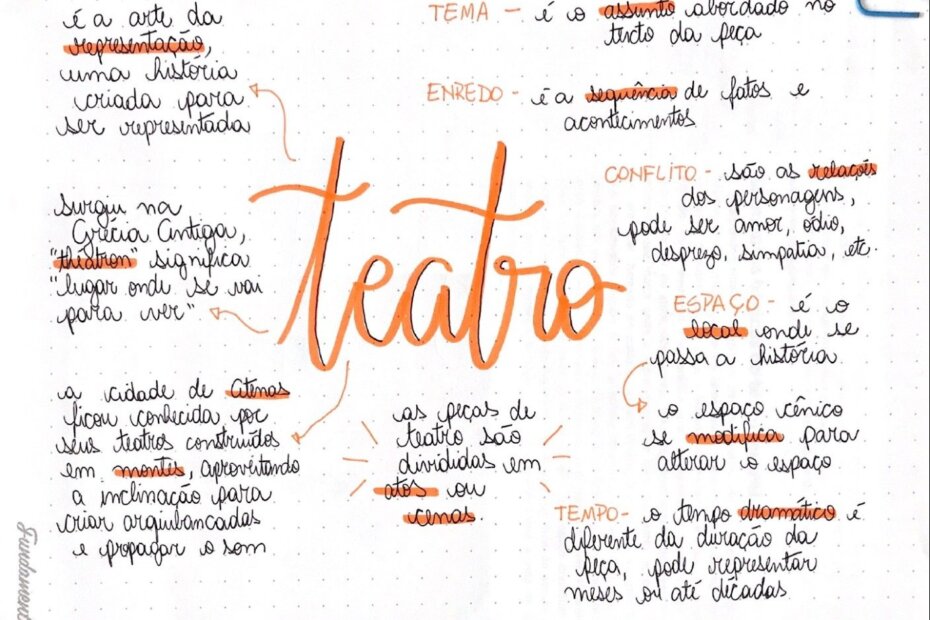 é a arte da
representação,
uma história
criada para
ser representada
surgiu na
Grécia Antiga,
"théatron" significa
"lugar onde se vai
para ver"
a cidade de Atenas
ficou conhecida por
seus teatros construídos
em montes, aproveitando
a inclinação para
criar arquibancadas
e propagar o som
teatro
as peças de
teatro são
divididas em
atos ou
cenas.
TEMA - é o assunto abordado no
texto da peça
ENREDO - é a sequência de fatos e
acontecimentos
CONFLITO - são as relações
dos personagens,
pode ser amor, ódio,
desprezo, simpatia, etc.
ESPAÇO - é o
local onde se
passa a história
o espaço cênico
se modifica para
alterar o espaço
TEMPO - o tempo dramático é
diferente da duração da
peça, pode representar
meses ou até décadas